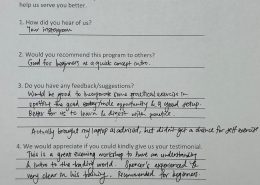 help us serve you better.
1. How did you hear of us?
Your instagram
2. Would you recommend this program to others?
Good for beginners as a quick concept intro.
3. Do you have any feedback/suggestions?
Would be good to incorporate some practical exercise in
spotting the good entry/trade opportunity & good setup.
Better for us to learn & digest with practice
Actually brought my laptop as advised, but didn't get a chance for self exercise
4. We would appreciate if you could kindly give us your testimonial.
This is a great evening workshop to have an understanding
& intro to the trading world. Spencer's experienced &
very clear in his training. Recommended for beginners.